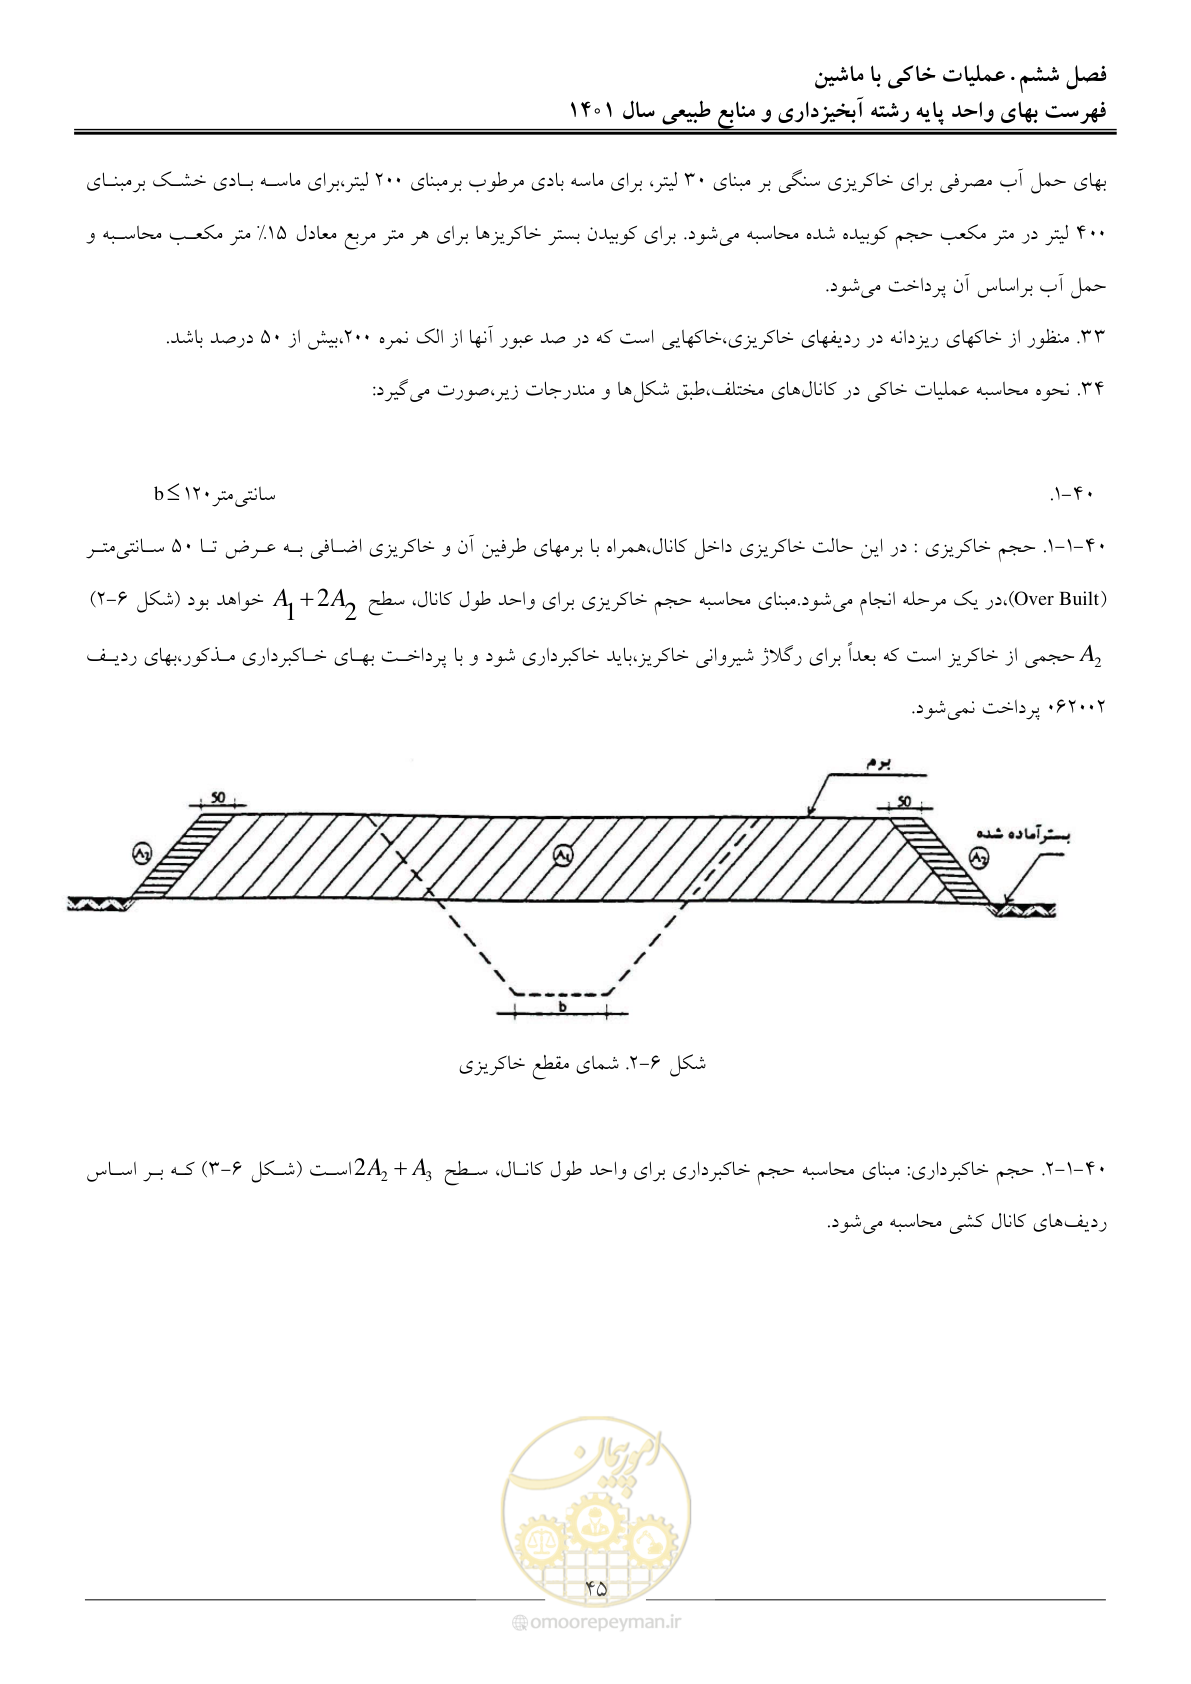 فصل ششم . عملیات خاکی با ماشین
فهرست بهای واحد پایه رشته آبخیزداری و منابع طبیعی سال ۱۴۰۱
بهای حمل آب مصرفی برای خاکریزی سنگی بر مبنای ۳۰ لیتر، برای ماسه بادی مرطوب برمبنای ۲۰۰ لیتر،برای ماسه بادی خشک برمبنای
۴۰۰ لیتر در متر مکعب حجم کوبیده شده محاسبه می‌شود. برای کوبیدن بستر خاکریزها برای هر متر مربع معادل ۱۵٪ متر مکعب محاسبه و
حمل آب براساس آن پرداخت می‌شود.
۳۳. منظور از خاکهای ریزدانه در ردیفهای خاکریزی،خاکهایی است که در صد عبور آنها از الک نمره ۲۰۰،بیش از ۵۰ درصد باشد.
۳۴. نحوه محاسبه عملیات خاکی در کانال‌های مختلف،طبق شکل‌ها و مندرجات زیر،صورت می‌گیرد:
۴۰-۱. b ≤ ۱۲۰ سانتی‌متر
۴۰-۱-۱. حجم خاکریزی : در این حالت خاکریزی داخل کانال،همراه با برمهای طرفین آن و خاکریزی اضافی به عرض تا ۵۰ سانتی‌متر
(Over Built)،در یک مرحله انجام می‌شود.مبنای محاسبه حجم خاکریزی برای واحد طول کانال، سطح A1 + 2A2 خواهد بود (شکل ۶-۲)
A2 حجمی از خاکریز است که بعداً برای رگلاژ شیروانی خاکریز،باید خاکبرداری شود و با پرداخت بهای خاکبرداری مذکور،بهای ردیف
۰۶۲۰۰۲ پرداخت نمی‌شود.
برم
50
50
بستر آماده شده
A2
A1
A2
b
شکل ۶-۲. شمای مقطع خاکریزی
۴۰-۱-۲. حجم خاکبرداری: مبنای محاسبه حجم خاکبرداری برای واحد طول کانال، سطح 2A2 + A3 است (شکل ۶-۳) که بر اساس
ردیف‌های کانال کشی محاسبه می‌شود.
امور پیمان
۴۵
omoorepeyman.ir